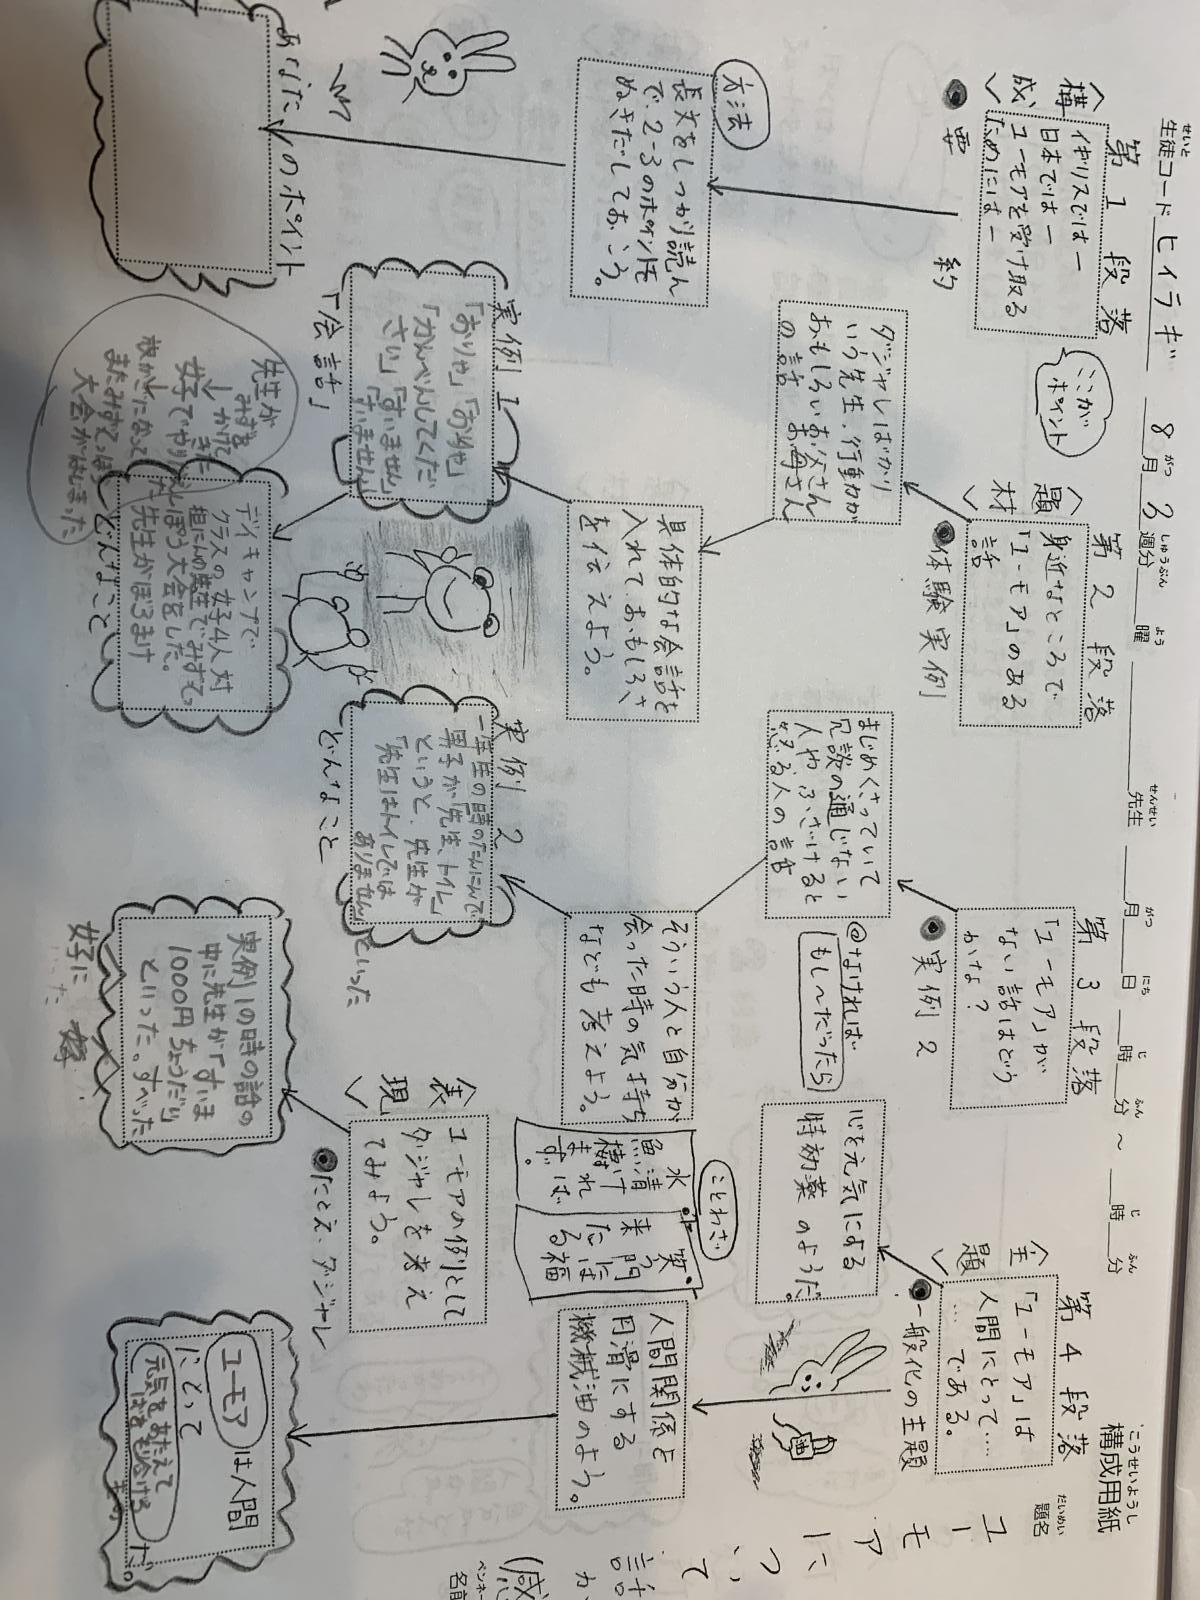 こうせいようし
構成用紙
だいめい
題名
ユーモアに
ついて
せいと
生徒コード ヒイラギ 8月3週分 曜 先生 月 日 時 分 ～ 時 分
がつ しゅうぶん よう せんせい がつ にち じ ふん じ ふん
第1段落
〈構成〉
イギリスではー
日本ではー
ユーモアを受け取る
ためにはー
要約
方法
長文をしっかり読ん
で、2-3のポイントを
ぬきだしておこう。
あなたのポイント
ここが
ポイント
第2段落
〈題材〉
身近なところで
「ユーモア」のある
話
体験実例
ダジャレばかり
いう先生、行動が
おもしろいお父さん
お母さん
の話
具体的な会話を
入れて、おもしろさ
を伝えよう。
実例1
「おりゃ」「お助せ」
「かんべんしてくだ
さい」「すいません」
「すいません」
「会話」
デイキャンプで
クラスの女子4人対
担にんの先生でみずでっ
ぽう大会をした。
先生がぼろまけ
どんなこと
先生が
みずを
かけて
きた
↓
女子でやり
↓
またみずでっぽう
大会がはじまった
第3段落
「ユーモア」が
ない話はどう
かな？
実例2
@なければ
もし〜だったら
まじめくさっていて
冗談の通じない
人や、ふざけると
怒る人の話
そういう人と自分が
会った時の気持ち
なども考えよう。
実例2
一年生の時のたんにんで
男子が「先生、トイレ」
というと、先生が
「先生はトイレでは
ありません」といった
どんなこと
〈表現〉
ユーモアの例として
ダジャレを考え
てみよう。
たとえ、ダジャレ
実例1の時の話の
中に先生が「すいま
1000円ちょうだい」
といった。すべった
女子に
第4段落
〈主題〉
「ユーモア」は
人間にとって…
…である。
一般化の主題
心を元気にする
特効薬のようだ。
ことわざ
水清ければ
魚棲まず
笑う門には
福来たる
人間関係を
円滑にする
機械油のよう。
ユーモアは人間
にとって
元気をあたえて
だ。